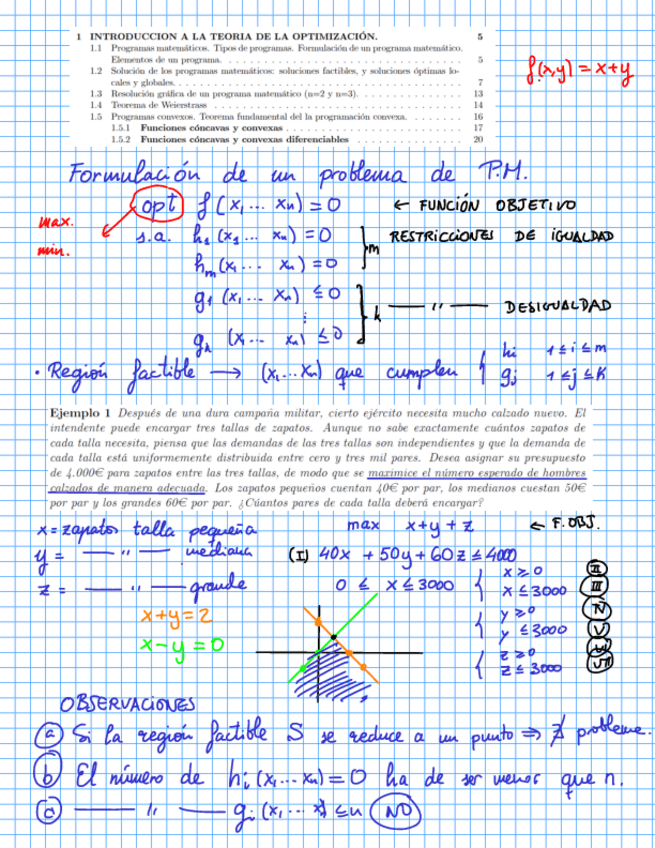 1 INTRODUCCION A LA TEORIA DE LA OPTIMIZACIÓN. 5
1.1 Programas matemáticos. Tipos de programas. Formulación de un programa matemático.
Elementos de un programa. 5
1.2 Solución de los programas matemáticos: soluciones factibles, y soluciones óptimas lo-
cales y globales. 7
1.3 Resolución gráfica de un programa matemático (n=2 y n=3). 13
1.4 Teorema de Weierstrass 14
1.5 Programas convexos. Teorema fundamental del la programación convexa. 16
1.5.1 Funciones cóncavas y convexas 17
1.5.2 Funciones cóncavas y convexas diferenciables 20
f(x,y) = x+y
Formulación de un problema de P.M.
opt f(x₁... xn) = 0 ← FUNCIÓN OBJETIVO
max.
min.
s.a. h₁(x₁... xn) = 0 RESTRICCIONES DE IGUALDAD
hm(x₁... xn) = 0 } m
g₁(x₁... xn) ≤ 0
⋮ } k — " — DESIGUALDAD
gk(x... xn) ≤ 0
· Región factible → (x₁...xn) que cumplen { hi 1≤i≤m
gj 1≤j≤K
Ejemplo 1 Después de una dura campaña militar, cierto ejército necesita mucho calzado nuevo. El
intendente puede encargar tres tallas de zapatos. Aunque no sabe exactamente cuántos zapatos de
cada talla necesita, piensa que las demandas de las tres tallas son independientes y que la demanda de
cada talla está uniformemente distribuida entre cero y tres mil pares. Desea asignar su presupuesto
de 4.000€ para zapatos entre las tres tallas, de modo que se maximice el número esperado de hombres
calzados de manera adecuada. Los zapatos pequeños cuentan 40€ por par, los medianos cuestan 50€
por par y los grandes 60€ por par. ¿Cúantos pares de cada talla deberá encargar?
x = zapatos talla pequeña max x+y+z ← F. OBJ.
y = — " — mediana (I) 40x + 50y + 60z ≤ 4000
z = — " — grande 0 ≤ x ≤ 3000 { x ≥ 0 II
x ≤ 3000 III
x+y = 2 { y ≥ 0 IV
x-y = 0 y ≤ 3000 V
{ z ≥ 0 VI
z ≤ 3000 VII
OBSERVACIONES
a Si la región factible S se reduce a un punto ⇒ ∄ problema.
b El número de hi(x₁...xn) = 0 ha de ser menor que n.
c — " — gi(x₁... x) ≤ n NO